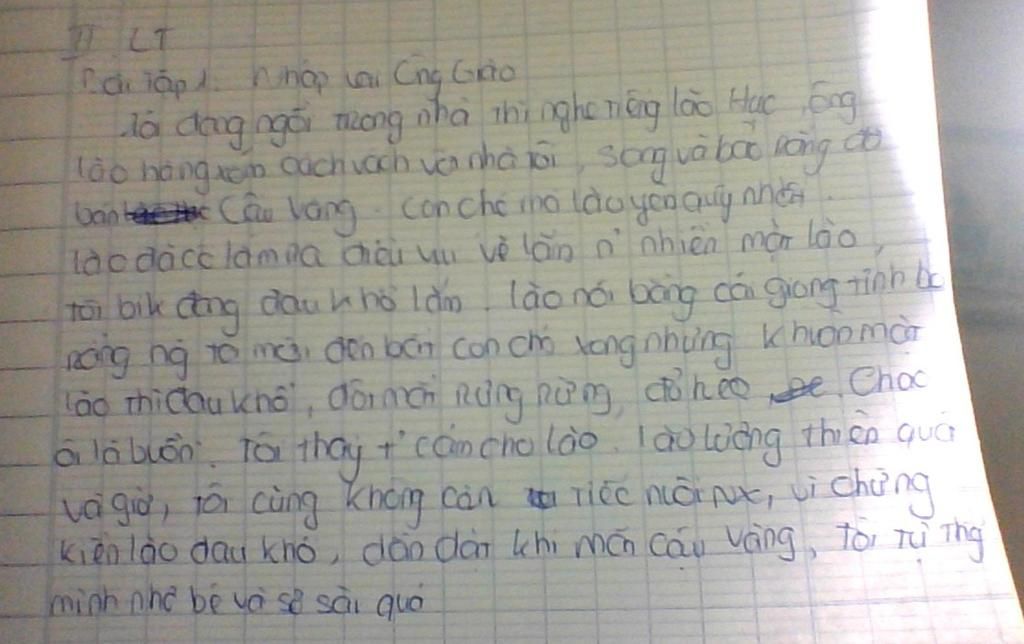 II LT
Bài tập 1. Nhập vai Ông Giáo
Tôi đang ngồi trong nhà thì nghe tiếng lão Hạc, ông
lão hàng xóm cách vách với nhà tôi, sang và báo rằng đã
bán Cậu Vàng. Con chó mà lão yêu quý nhất.
lão đã cố làm ra vui vẻ
tôi đang đau khổ lắm. lão nói bằng cái giọng tỉnh bơ
rằng mới đến bán con chó xong nhưng khuôn mặt
lão thì đau khổ, đôi mắt rưng rưng, đỏ hoe, Chắc
ai là buồn. Tôi thấy cảm cho lão. lão lương thiện quá
và giờ, tôi cũng không còn tiếc nuối, vì chứng
kiến lão đau khổ, dằn dặt khi mất cậu vàng, tôi tự
mình nhỏ bé và quá